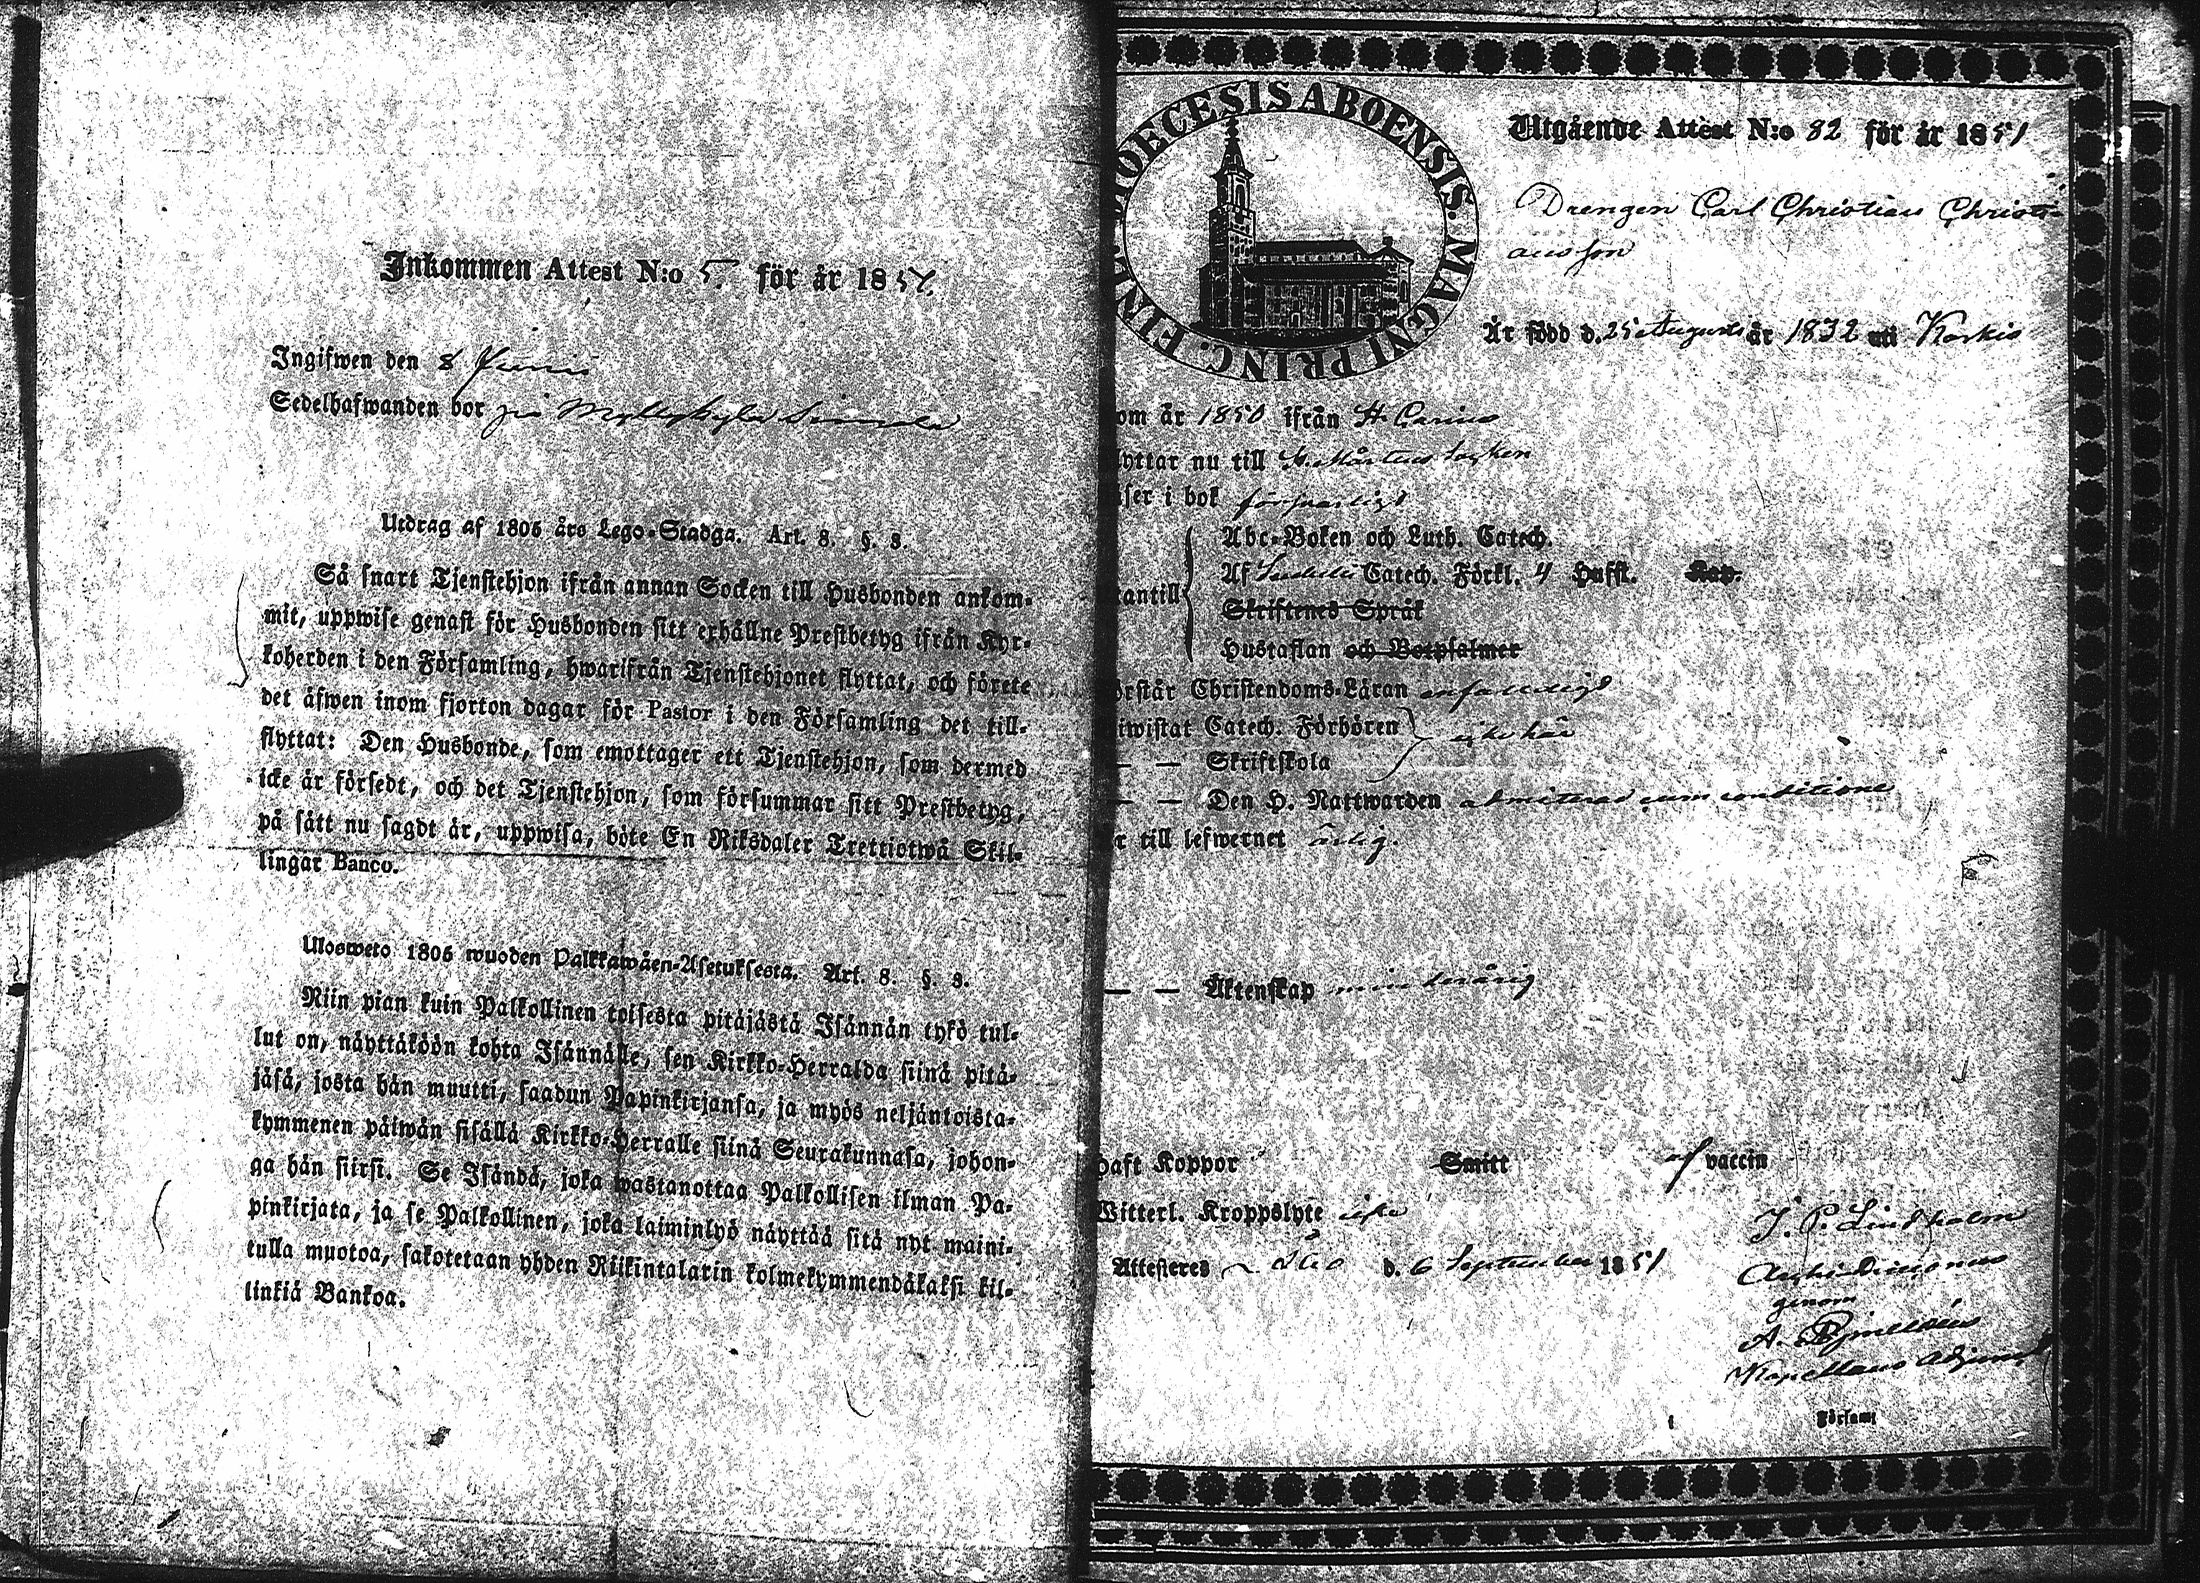 Inkommen Attest N:o 5. för år 185
Ingifwen den 8 Junii
Sedelhafwanden bor på
Utdrag af 1805 års Lego-Stadga. Art. 8. §. 3.
Så snart Tjenstehjon ifrån annan Socken till Husbonden ankom-
mit, uppwise genast för Husbonden sitt erhållne Prestbetyg ifrån Kyr-
koherden i den Församling, hwarifrån Tjenstehjonet flyttat, och förete
det äfwen inom fjorton dagar för Pastor i den Församling det till-
flyttat: Den Husbonde, som emottager ett Tjenstehjon, som dermed
icke är försedt, och det Tjenstehjon, som försummar sitt Prestbetyg,
på sätt nu sagdt är, uppwisa, böte En Riksdaler Trettiotwå Skil-
lingar Banco.
Ulosweto 1805 wuoden Palkkawäen-Asetuksesta. Art. 8. §. 3.
Niin pian kuin Palkollinen toisesta pitäjästä Isännän tykö tul-
lut on, näyttäköön kohta Isännälle, sen Kirkko-Herralda siinä pitä-
jäsä, josta hän muutti, saadun Papinkirjansa, ja myös neljäntoista-
kymmenen päiwän sisällä Kirkko-Herralle siinä Seurakunnasa, johon-
ga hän siirsi. Se Isändä, joka wastanottaa Palkollisen ilman Pa-
pinkirjata, ja se Palkollinen, joka laiminlyö näyttää sitä nyt maini-
tulla muotoa, sakotetaan yhden Riikintalarin kolmekymmendäkaksi kil-
linkiä Bankoa.
DIOECESIS ABOENSIS. MAGNI PRINC. FINL.
Utgående Attest N:o 82 för år 1851
Drengen Carl Christian Christi-
ansson
Är född d. 25 Augusti år 1832 uti Karkis
om år 1850 ifrån St Carins
lyttar nu till St. Mårtens Socken
äser i bok försvarligt
Abc-Boken och Luth. Catech.
Af Catech. Förkl. 4 Hufst. Kap.
antill
Skriftenes Språk
Hustaflan och Botpsalmer
örstår Christendoms-Läran enfaldigt
iwistat Catech. Förhören
icke här
— — Skriftskola
— — Den H. Nattwarden admitterad cum conditione
r till lefwernet ärlig.
— — Äktenskap minderårig
haft Koppor Smitt af vaccin
Witterl. Kroppslyte icke
Attesteres Åbo d. 6 September 1851
J. P. Lindholm
Archi
genom
A.
Kapellans Adjunct
Försam